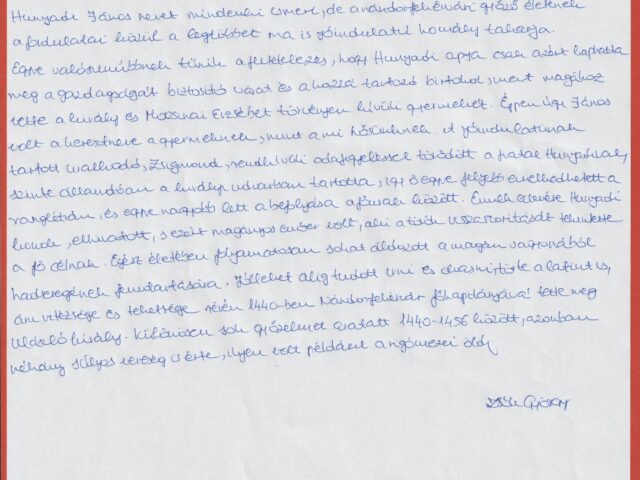 Hunyadi János nevét mindenki ismeri, de a nándorfehérvári győző életének
a fordulatai közül a legtöbbet ma is jóindulatú homály takarja.
Egyre valószínűbbnek tűnik a feltételezés, hogy Hunyadi apja csak azért kaphatta
meg a gazdagságát biztosító várat és a hozzá tartozó birtokot, mert magához
vette a király és Morzsinai Erzsébet törvényen kívüli gyermekét. Éppen úgy János
volt a keresztneve a gyermeknek, mint a mi hősünknek. A jóindulatúnak
tartott uralkodó, Zsigmond, rendkívüli odafigyeléssel törődött a fiatal Hunyadival,
szinte állandóan a király udvarban tartotta, így ő egyre feljebb emelkedhetett a
ranglétrán, és egyre nagyobb lett a befolyása a főurak között. Ennek ellenére Hunyadi
konok, elhivatott, s ezért magányos ember volt, aki a török visszaszorítását tekintette
a fő célnak. Egész életében folyamatosan sokat áldozott a magán vagyonából
hadseregének fenntartására. Jóllehet alig tudott írni és olasz törte a latint is,
ám vitézsége és tehetsége révén 1440-ben Nándorfehérvár főkapitányává tette meg
Ulászló király. Különösen sok győzelmet aratott 1440-1456 között, azonban
néhány súlyos vereség is érte, ilyen volt például a rigómezei